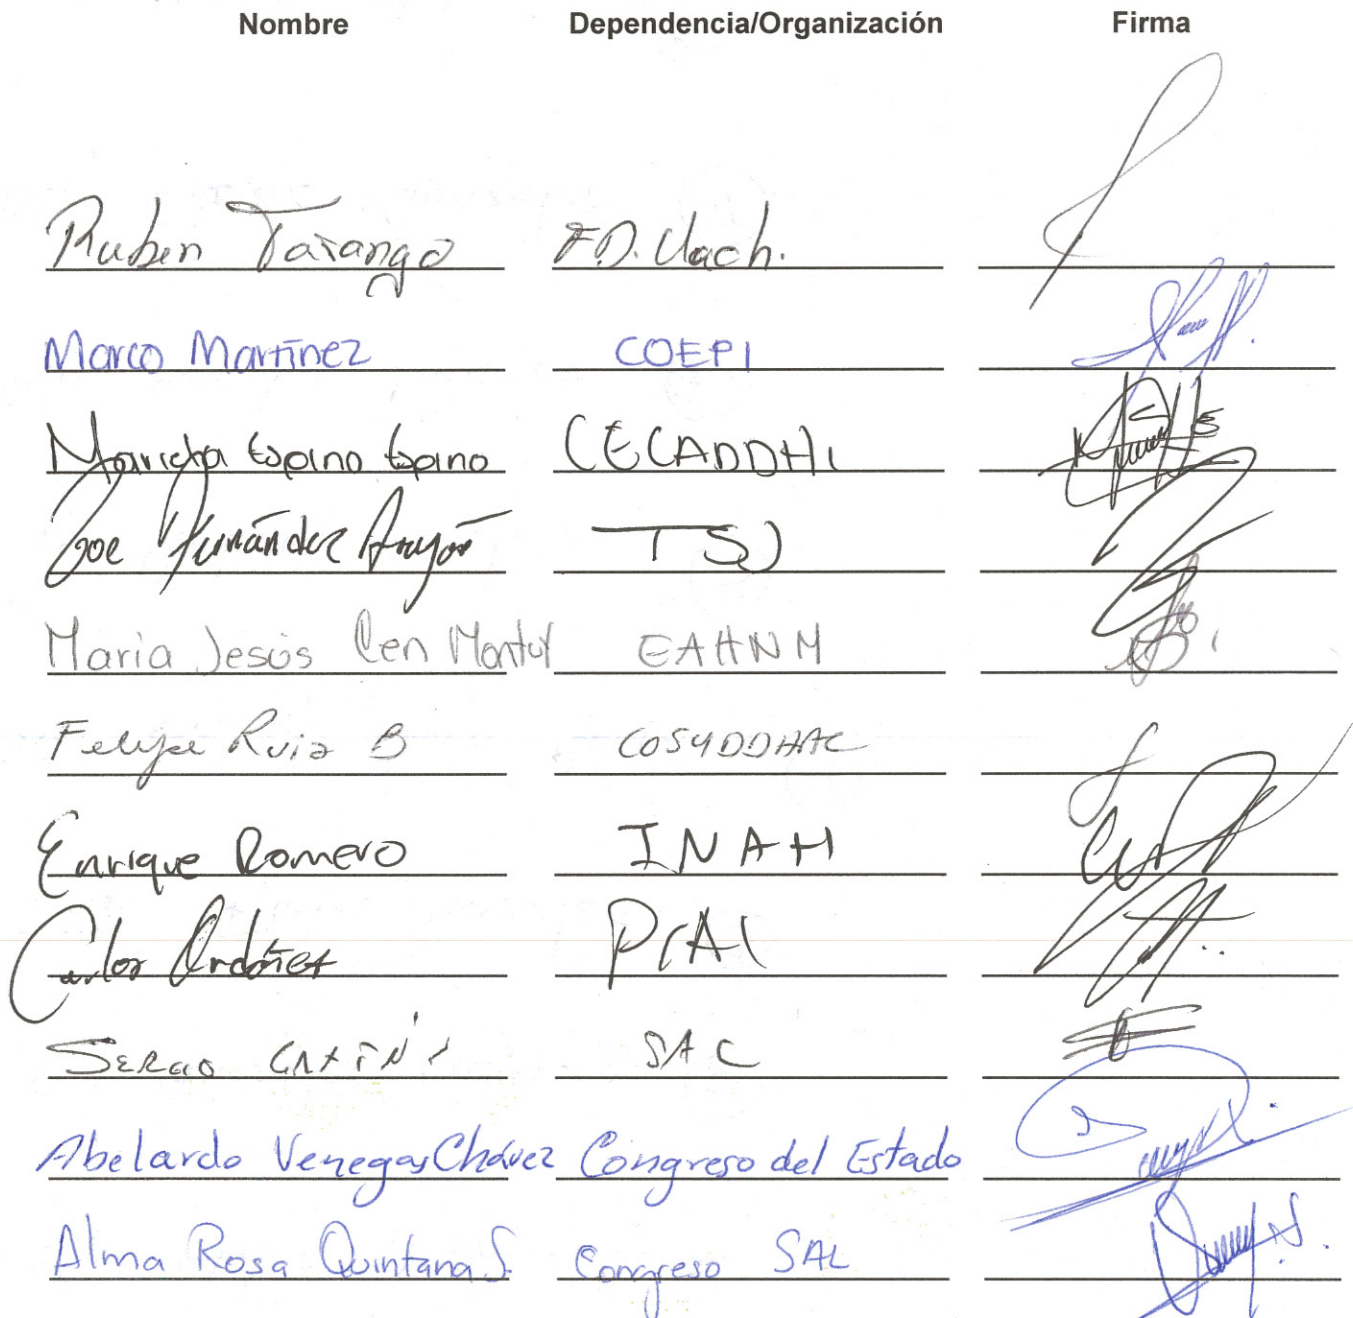 Nombre Dependencia/Organización Firma
Ruben Tarango F.D. Uach.
Marco Martínez COEPI
Maricha Espino Espino CECADDHI
Zoe Fernández Aragón TSJ
Maria Jesús Cen Montuy EAHNM
Felipe Ruiz B COSYDDHAC
Enrique Romero INAH
Carlos Ordóñez PIAI
SERGIO SAC
Abelardo Venegas Chávez Congreso del Estado
Alma Rosa Quintana S. Congreso SAL